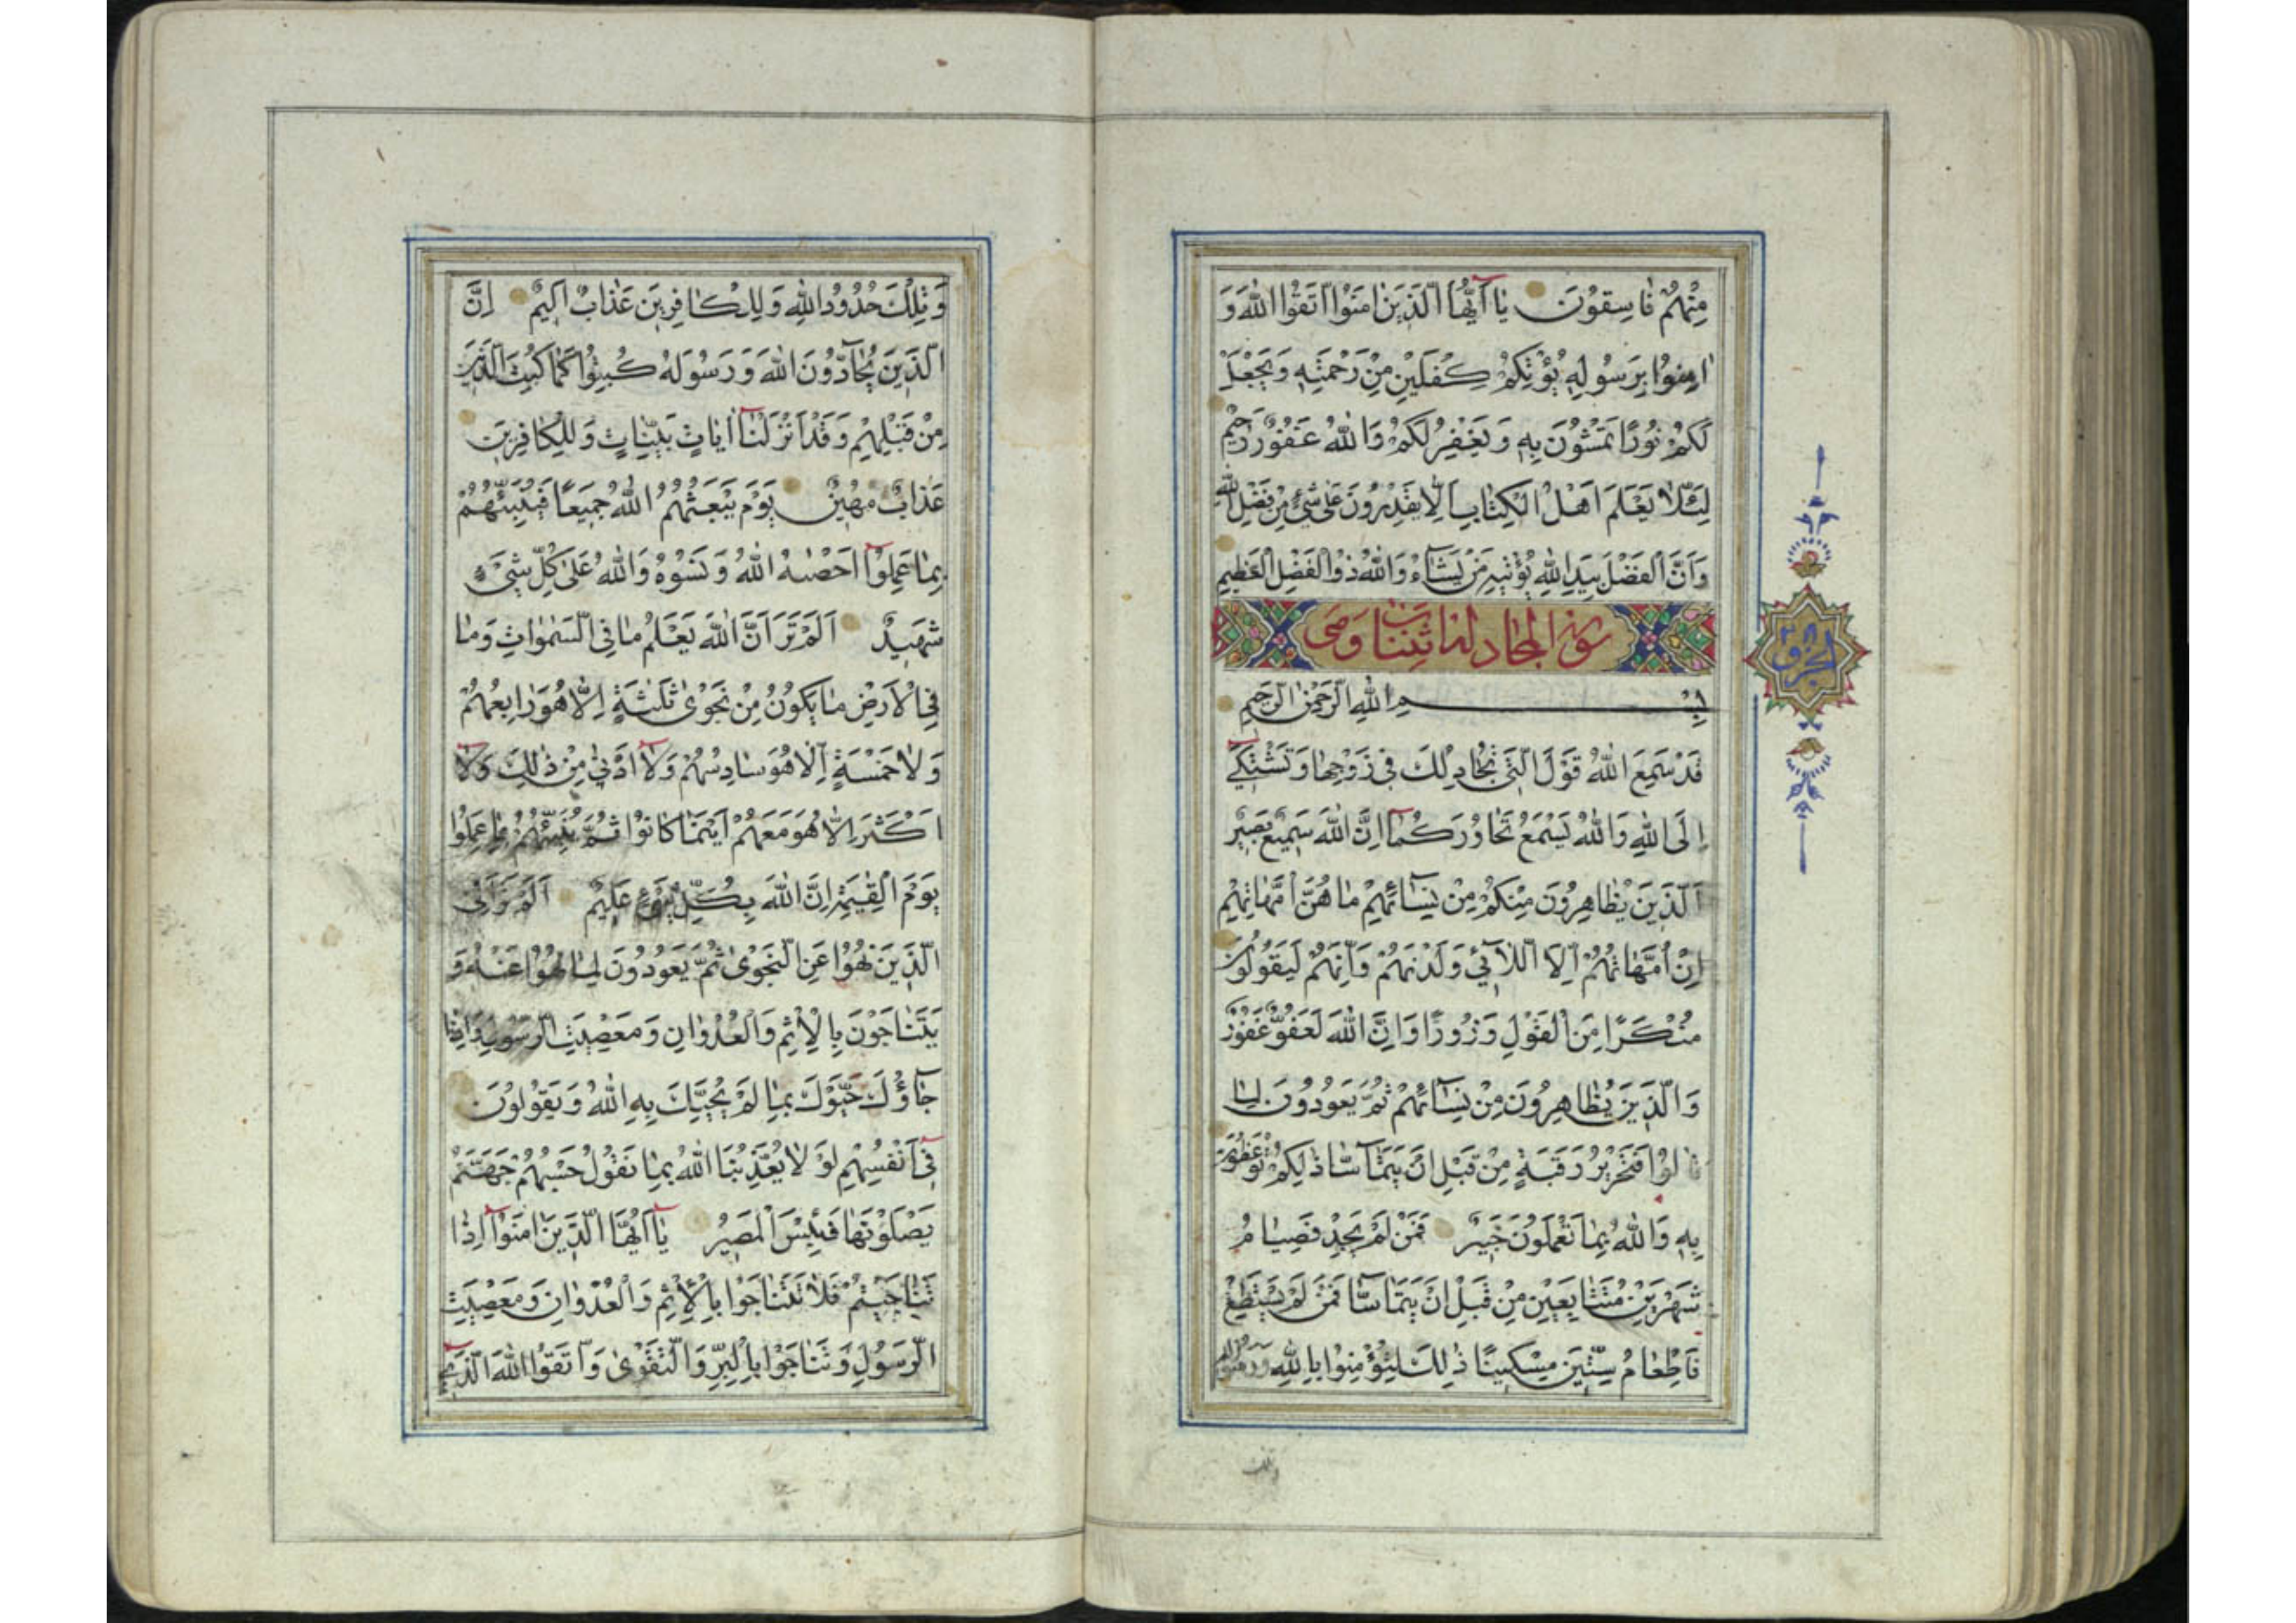 مِنْهُمْ فَاسِقُونَ يَا أَيُّهَا الَّذِينَ اٰمَنُوا اتَّقُوا اللّٰهَ وَ
اٰمِنُوا بِرَسُولِهِ يُؤْتِكُمْ كِفْلَيْنِ مِنْ رَحْمَتِهِ وَيَجْعَلْ
لَكُمْ نُورًا تَمْشُونَ بِهِ وَيَغْفِرْ لَكُمْ وَاللّٰهُ غَفُورٌ رَحِيمٌ
لِئَلَّا يَعْلَمَ اَهْلُ الْكِتَابِ اَلَّا يَقْدِرُونَ عَلٰى شَيْءٍ مِنْ فَضْلِ اللّٰهِ
وَاَنَّ الْفَضْلَ بِيَدِ اللّٰهِ يُؤْتِيهِ مَنْ يَشَاءُ وَاللّٰهُ ذُو الْفَضْلِ الْعَظِيمِ
سورة المجادلة اثنتا وهى
الحزب
بِسْمِ اللّٰهِ الرَّحْمٰنِ الرَّحِيمِ
قَدْ سَمِعَ اللّٰهُ قَوْلَ الَّتِي تُجَادِلُكَ فِي زَوْجِهَا وَتَشْتَكِي
اِلَى اللّٰهِ وَاللّٰهُ يَسْمَعُ تَحَاوُرَكُمَا اِنَّ اللّٰهَ سَمِيعٌ بَصِيرٌ
اَلَّذِينَ يُظَاهِرُونَ مِنْكُمْ مِنْ نِسَائِهِمْ مَا هُنَّ اُمَّهَاتِهِمْ
اِنْ اُمَّهَاتُهُمْ اِلَّا اللَّائِي وَلَدْنَهُمْ وَاِنَّهُمْ لَيَقُولُونَ
مُنْكَرًا مِنَ الْقَوْلِ وَزُورًا وَاِنَّ اللّٰهَ لَعَفُوٌّ غَفُورٌ
وَالَّذِينَ يُظَاهِرُونَ مِنْ نِسَائِهِمْ ثُمَّ يَعُودُونَ لِمَا
قَالُوا فَتَحْرِيرُ رَقَبَةٍ مِنْ قَبْلِ اَنْ يَتَمَاسَّا ذٰلِكُمْ تُوعَظُونَ
بِهِ وَاللّٰهُ بِمَا تَعْمَلُونَ خَبِيرٌ فَمَنْ لَمْ يَجِدْ فَصِيَامُ
شَهْرَيْنِ مُتَتَابِعَيْنِ مِنْ قَبْلِ اَنْ يَتَمَاسَّا فَمَنْ لَمْ يَسْتَطِعْ
فَاِطْعَامُ سِتِّينَ مِسْكِينًا ذٰلِكَ لِتُؤْمِنُوا بِاللّٰهِ وَرَسُولِهِ
وتلك
وَتِلْكَ حُدُودُ اللّٰهِ وَلِلْكَافِرِينَ عَذَابٌ اَلِيمٌ اِنَّ
الَّذِينَ يُحَادُّونَ اللّٰهَ وَرَسُولَهُ كُبِتُوا كَمَا كُبِتَ الَّذِينَ
مِنْ قَبْلِهِمْ وَقَدْ اَنْزَلْنَا اٰيَاتٍ بَيِّنَاتٍ وَلِلْكَافِرِينَ
عَذَابٌ مُهِينٌ يَوْمَ يَبْعَثُهُمُ اللّٰهُ جَمِيعًا فَيُنَبِّئُهُمْ
بِمَا عَمِلُوا اَحْصٰيهُ اللّٰهُ وَنَسُوهُ وَاللّٰهُ عَلٰى كُلِّ شَيْءٍ
شَهِيدٌ اَلَمْ تَرَ اَنَّ اللّٰهَ يَعْلَمُ مَا فِي السَّمٰوَاتِ وَمَا
فِي الْاَرْضِ مَا يَكُونُ مِنْ نَجْوٰى ثَلٰثَةٍ اِلَّا هُوَ رَابِعُهُمْ
وَلَا خَمْسَةٍ اِلَّا هُوَ سَادِسُهُمْ وَلَا اَدْنٰى مِنْ ذٰلِكَ وَلَا
اَكْثَرَ اِلَّا هُوَ مَعَهُمْ اَيْنَمَا كَانُوا ثُمَّ يُنَبِّئُهُمْ بِمَا عَمِلُوا
يَوْمَ الْقِيٰمَةِ اِنَّ اللّٰهَ بِكُلِّ شَيْءٍ عَلِيمٌ اَلَمْ تَرَ اِلَى
الَّذِينَ نُهُوا عَنِ النَّجْوٰى ثُمَّ يَعُودُونَ لِمَا نُهُوا عَنْهُ وَ
يَتَنَاجَوْنَ بِالْاِثْمِ وَالْعُدْوَانِ وَمَعْصِيَتِ الرَّسُولِ وَاِذَا
جَاؤُكَ حَيَّوْكَ بِمَا لَمْ يُحَيِّكَ بِهِ اللّٰهُ وَيَقُولُونَ
فِي اَنْفُسِهِمْ لَوْلَا يُعَذِّبُنَا اللّٰهُ بِمَا نَقُولُ حَسْبُهُمْ جَهَنَّمُ
يَصْلَوْنَهَا فَبِئْسَ الْمَصِيرُ يَا اَيُّهَا الَّذِينَ اٰمَنُوا اِذَا
تَنَاجَيْتُمْ فَلَا تَتَنَاجَوْا بِالْاِثْمِ وَالْعُدْوَانِ وَمَعْصِيَتِ
الرَّسُولِ وَتَنَاجَوْا بِالْبِرِّ وَالتَّقْوٰى وَاتَّقُوا اللّٰهَ الَّذِي